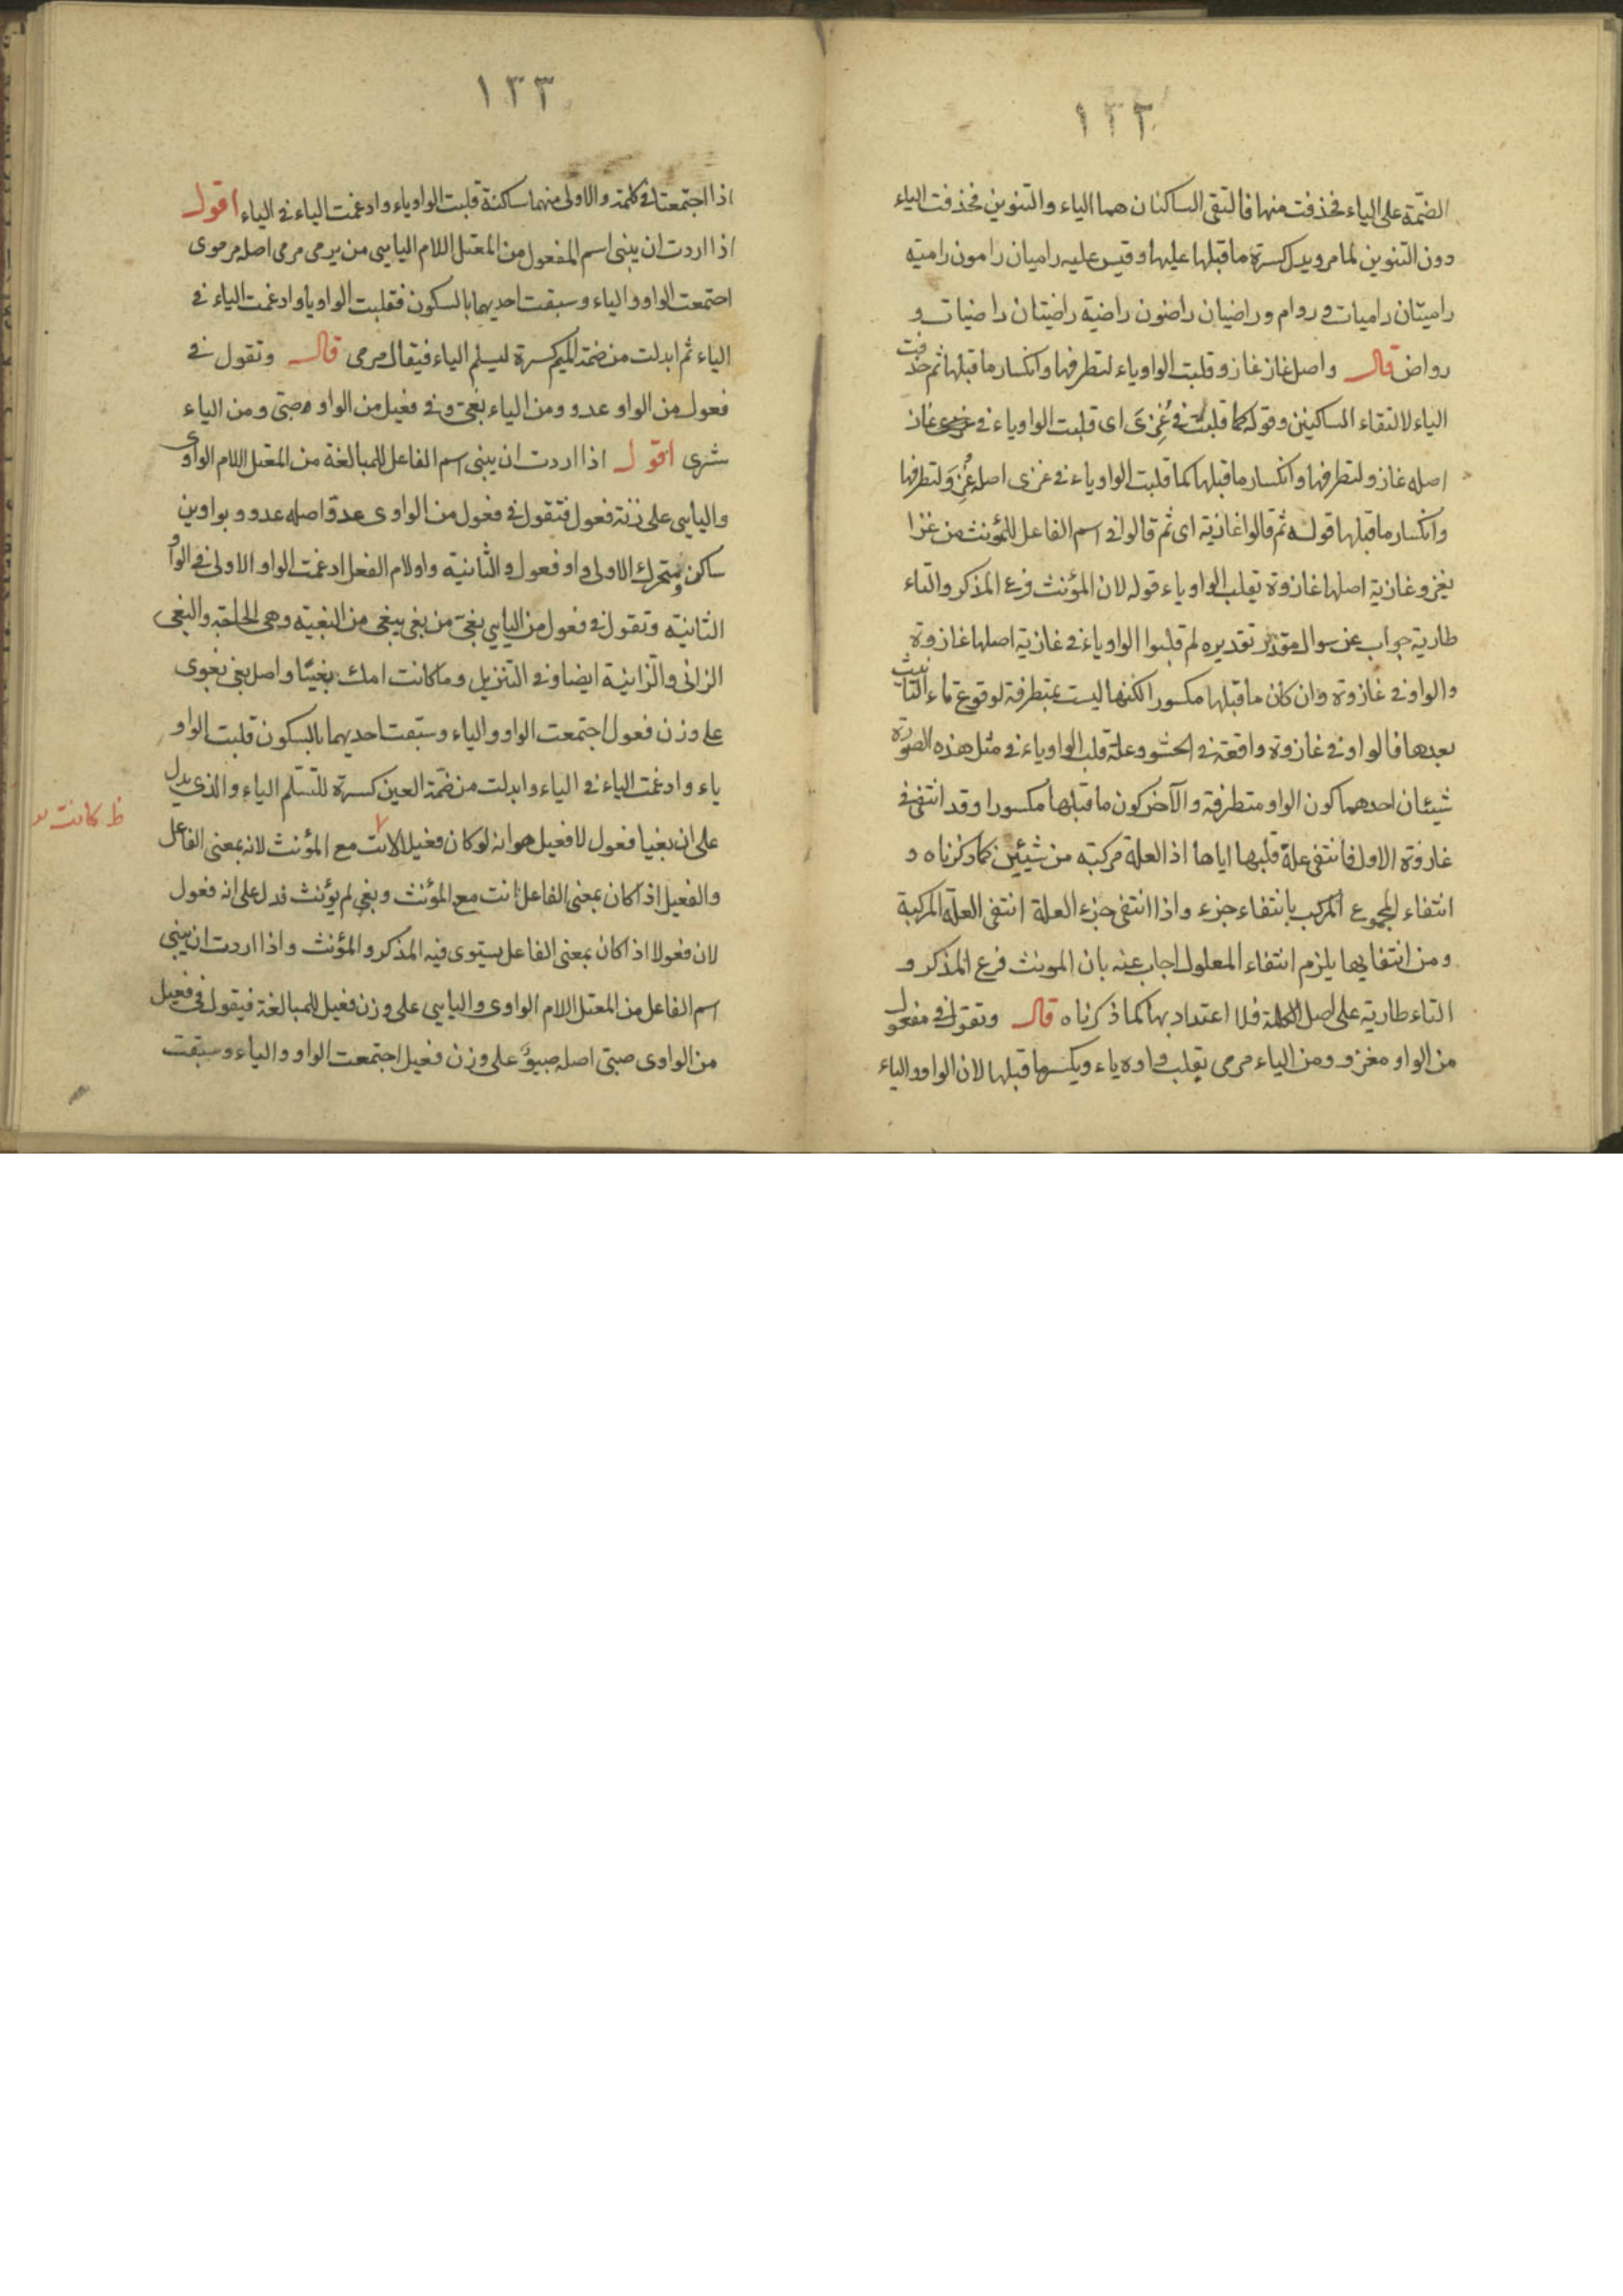 ١٣٢
الضمة على الياء فحذفت منها فالتقى الساكنان هما الياء والتنوين فحذفت الياء
دون التنوين لما مر ويدل كسرة ما قبلها عليها وقيس عليه راميان رامون رامية
راميتان راميات و روام وراضيان راضون راضية راضيتان راضيات و
رواض قال واصل غاز غازو قلبت الواو ياء لتطرفها وانكسار ما قبلها ثم حذفت
الياء لالتقاء الساكنين وقوله كما قلبت في غُزِىَ اى قلبت الواو ياء في غاز
اصله غازو لتطرفها وانكسار ما قبلها كما قلبت الواو ياء في غزى اصله غُزِوَ لتطرفها
وانكسار ما قبلها قوله ثم قالوا غازية اى ثم قالوا في اسم الفاعل للمؤنث من غزا
يغزو غازية اصلها غازوة تقلب الواو ياء قوله لان المؤنث فرع المذكر والتاء
طارية جواب عن سوال مقدر تقديره لم قلبوا الواو ياء في غازية اصلها غازوة
والواو في غازوة وان كان ما قبلها مكسورا لكنها ليست بمتطرفة لوقوع تاء التانيث
بعدها فالواو في غازوة واقعة في الحشو وعلة قلب الواو ياء في مثل هذه الصورة
شيئان احدهما كون الواو متطرفة والآخر كون ما قبلها مكسورا وقد انتفى في
غازوة الاول فانتفى علة قلبها اياها اذ العلة مركبة من شيئين كما ذكرناه و
انتفاء المجموع المركب بانتفاء جزء واذا انتفى جزء العلة انتفى العلة المركبة
ومن انتفايها يلزم انتفاء المعلول اجاب عنه بان المونث فرع المذكر و
التاء طارية على اصل الكلمة فلا اعتداد بها كما ذكرناه قال وتقول في مفعول
من الواو مغزو ومن الياء مرمى يقلب واوه ياء ويكسر ما قبلها لان الواو والياء
١٣٣
اذا اجتمعتا في كلمة والاولى منهما ساكنة قلبت الواو ياء وادغمت الياء في الياء اقول
اذا اردت ان يبنى اسم المفعول من المعتل اللام اليايى من يرمى مرمى اصله مرموى
اجتمعت الواو والياء وسبقت احديهما بالسكون فقلبت الواو يا وادغمت الياء في
الياء ثم ابدلت من ضمة الميم كسرة ليسلم الياء فيقال مرمى قال وتقول في
فعول من الواو عدو ومن الياء بغى وفي فعيل من الواو صبى ومن الياء
شرى اقول اذا اردت ان يبنى اسم الفاعل للمبالغة من المعتل اللام الواوى
واليايى على زنة فعول فتقول في فعول من الواوى عدو اصله عدوو بواوين
ساكن ومتحرك الاولى واو فعول والثانية واو لام الفعل ادغمت الواو الاولى في الواو
الثانية وتقول في فعول من اليايى بغى من بغى يبغى من البغية وهى الحاجة والبغى
الزانى والزانية ايضا وفي التنزيل وما كانت امك بغيًا واصل بغى بغوى
على وزن فعول اجتمعت الواو والياء وسبقت احديهما بالسكون قلبت الواو
ياء وادغمت الياء في الياء وابدلت من ضمة العين كسرة لتسلم الياء والذى يدل
على ان بغيا فعول لا فعيل هو انه لو كان فعيلا لانت مع المؤنث لانه بمعنى الفاعل
ظ كانت
والفعيل اذا كان بمعنى الفاعل انت مع المؤنث وبغى لم يؤنث فدل على انه فعول
لان فعولا اذا كان بمعنى الفاعل يستوى فيه المذكر والمؤنث واذا اردت ان يبنى
اسم الفاعل من المعتل اللام الواوى واليايى على وزن فعيل للمبالغة فيقول في فعيل
من الواوى صبى اصله صبيو على وزن فعيل اجتمعت الواو والياء وسبقت